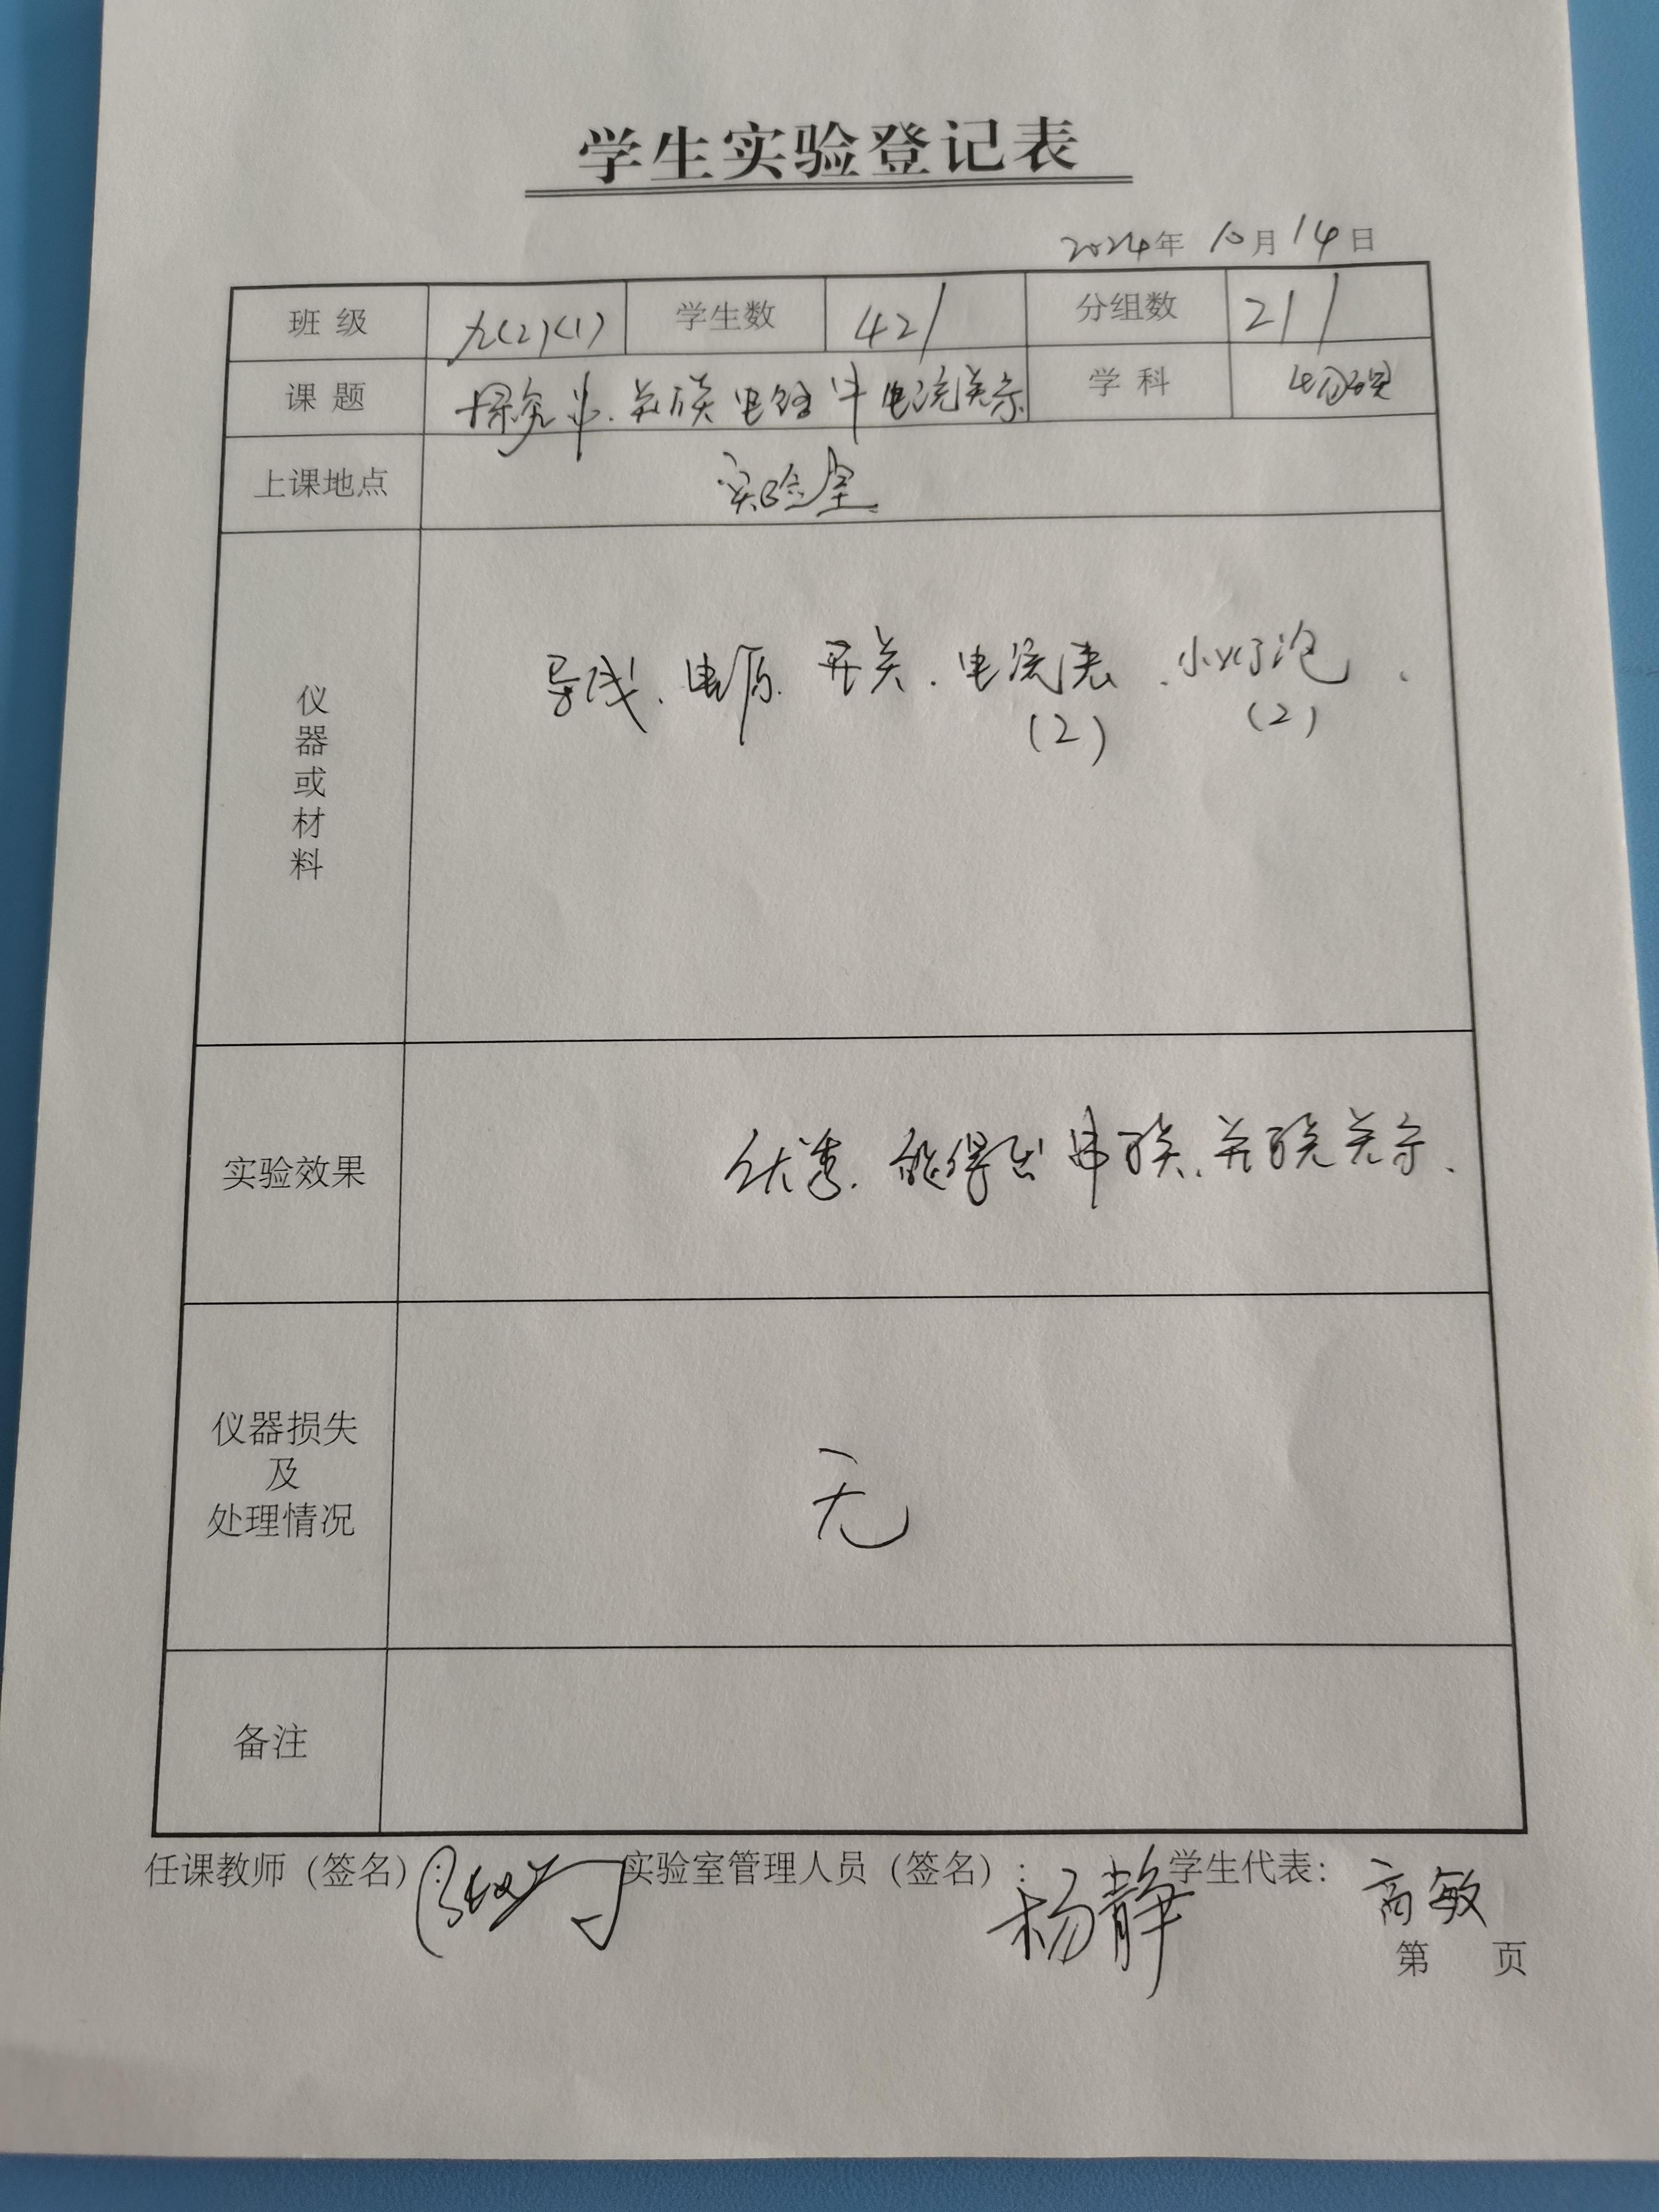 学生实验登记表
2024年 10月 14日
班 级 九(2)(1) 学生数 42/ 分组数 21/
课 题 探究串.并联电路中电流关系 学 科
上课地点 实验室
仪器或材料 导线、电源、开关、电流表、小灯泡、
(2) (2)
实验效果 优秀、能得出串联、并联关系、
仪器损失
及
处理情况 无
备注
任课教师（签名）: 实验室管理人员（签名）: 杨静 学生代表: 高敏
第 页